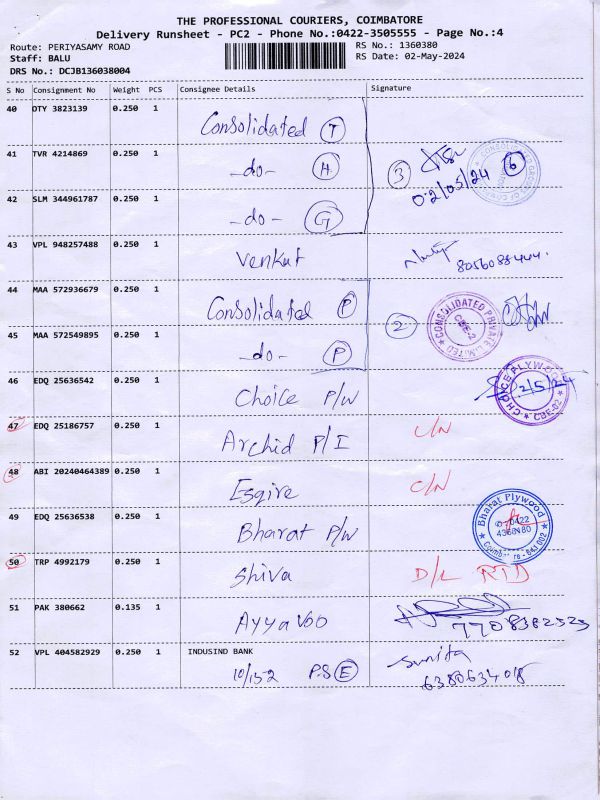 THE PROFESSIONAL COURIERS, COIMBATORE
Delivery Runsheet - PC2 - Phone No.:0422-3505555 - Page No.:4
Route: PERIYASAMY ROAD
Staff: BALU
DRS No.: DCJB136038004
RS No.: 1360380
RS Date: 02-May-2024
S No Consignment No Weight PCS Consignee Details Signature
40 OTY 3823139 0.250 1 Consolidated T
41 TVR 4214869 0.250 1 -do- H
3 02/05/24 6
42 SLM 344961787 0.250 1 -do- G
43 VPL 948257488 0.250 1 Venkat
8056088444.
44 MAA 572936679 0.250 1 Consolidated P
2 CONSOLIDATED PRIVATE LIMITED CBE-2
45 MAA 572549895 0.250 1 -do- P
46 EDQ 25636542 0.250 1 Choice P/W 2/5/24
47 EDQ 25186757 0.250 1 Archid P/I C/N
48 ABI 20240464389 0.250 1 Esqire C/N
49 EDQ 25636538 0.250 1 Bharat P/W Bharat Plywood
50 TRP 4992179 0.250 1 Shiva D/L RTD
51 PAK 380662 0.135 1 Ayyavoo 7708382323
52 VPL 404582929 0.250 1 INDUSIND BANK Sunita
10/15-2 P.S E 6380634018